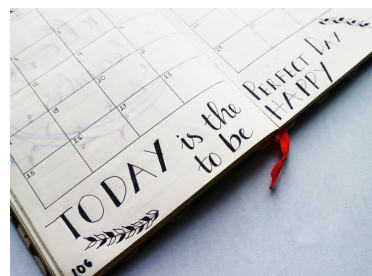 TODAY is the PERFECT DAY
to be HAPPY
106